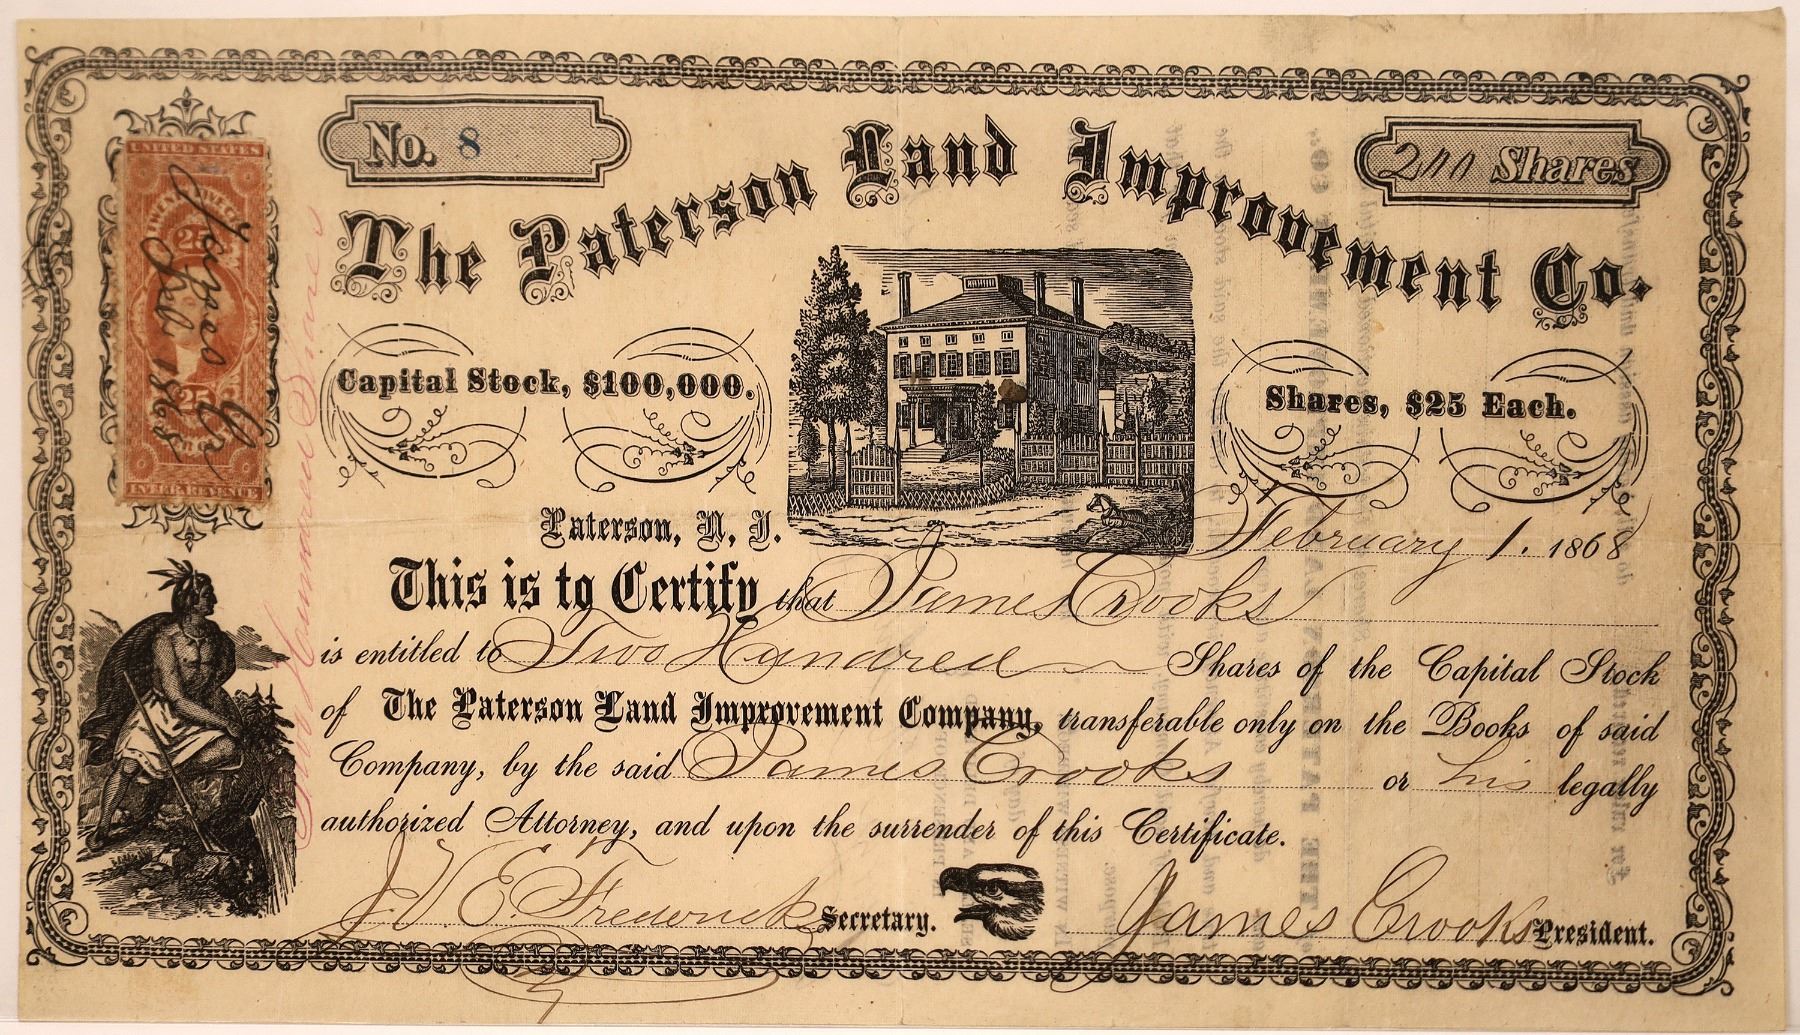 No. 8
200 Shares
The Paterson Land Improvement Co.
UNITED STATES
25
25
INTER. REVENUE
James Cr
Feb 1 1868
Capital Stock, $100,000.
Shares, $25 Each.
Paterson, N. J. February 1. 1868
This is to Certify that James Crooks
is entitled to Two Hundred Shares of the Capital Stock
of The Paterson Land Improvement Company, transferable only on the Books of said
Company, by the said James Crooks or his legally
authorized Attorney, and upon the surrender of this Certificate.
J. V. E. Frederick Secretary.
James Crooks President.
Hundred Shares